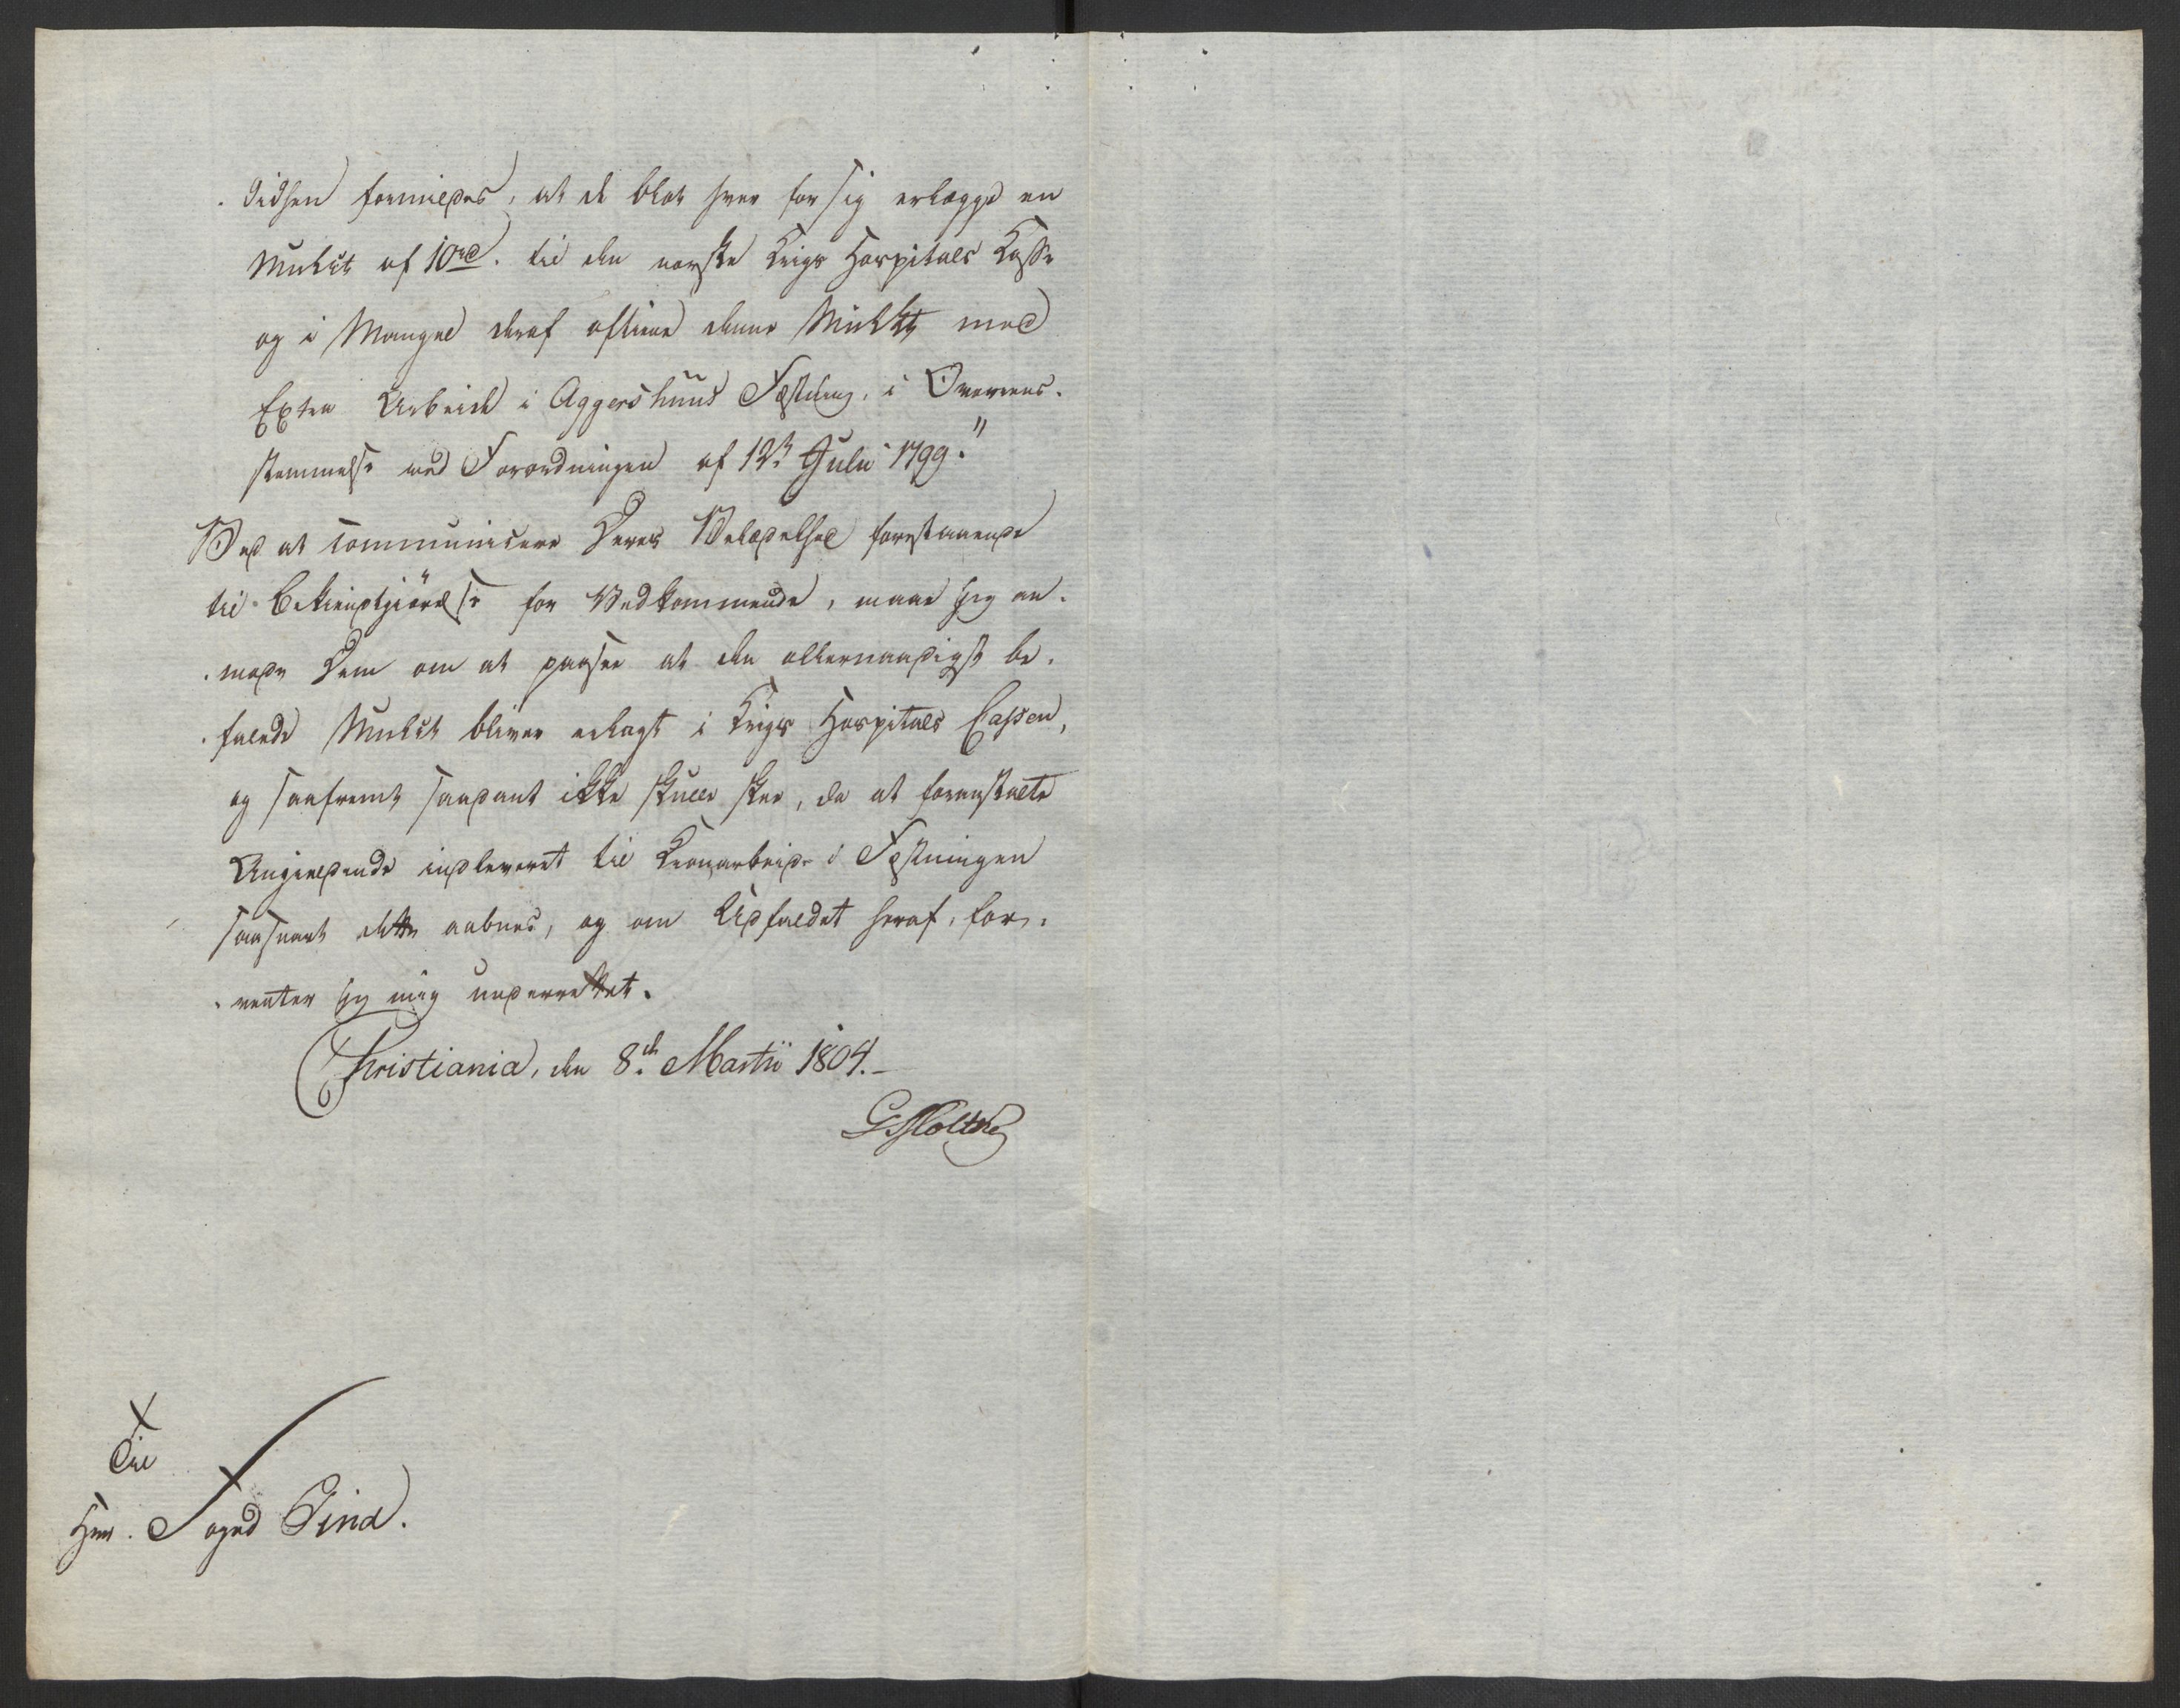 formildes, at de blot hver for sig erlægge en
Mulct af 10 rd. til den norske Krigs Hospitals Casse
og i Mangel deraf aftiene denne Mulct med
Extra Arbeide i Aggershuus Fæstning, i Overeens-
stemmelse med Forordningen af 12te Julii 1799."
Ved at communicere Deres Velædelhed forestaaende
til Bekiendtgiørelse for Vedkommende, maae jeg an-
-mode Dem om at paasee at den allernaadigst be-
-falede Mulct bliver erlagt i Krigs Hospitals Cassen,
og saafremt saadant ikke skulle skee, da at foranstalte
Angieldende indleveret til Cronarbeide i Fæstningen
saasnart dette aabnes, og om Udfaldet heraf, for-
-venter jeg mig underrettet.
Christiania, den 8de Martii 1804.-
G Moltke
Til
Hrr. Foged Gind.